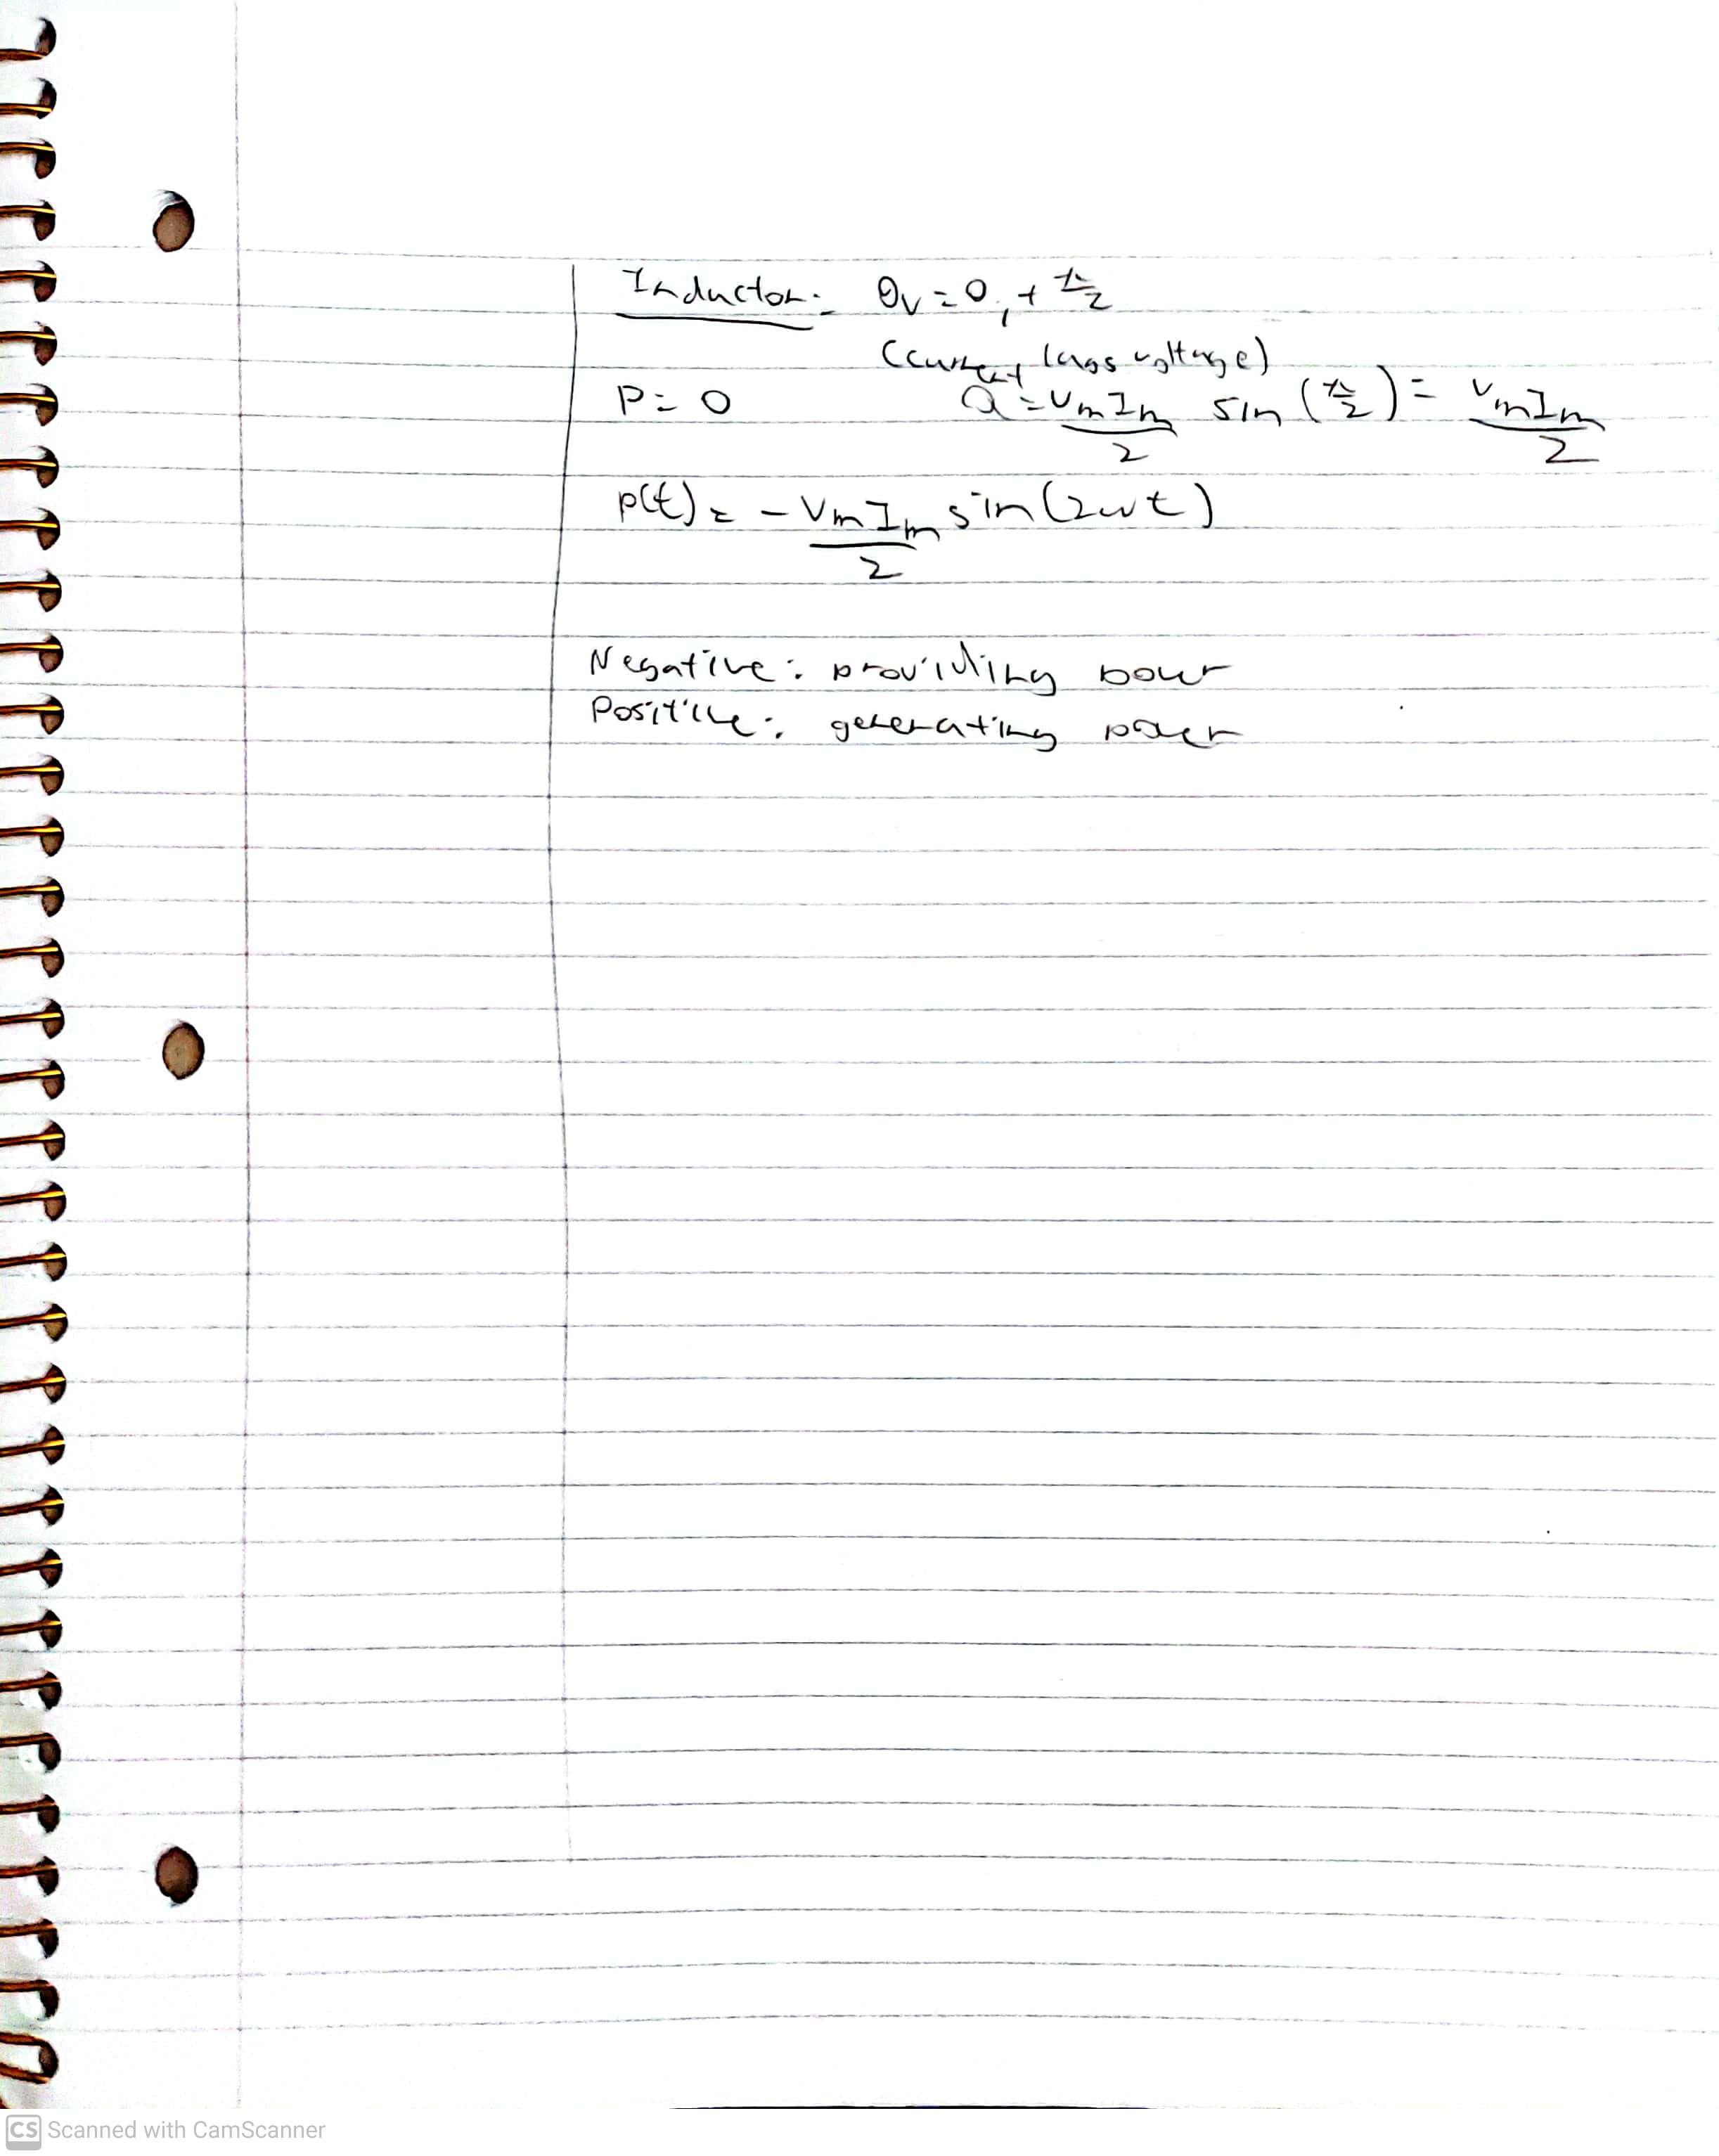 Inductor: θv = θi + π/2
(current lags voltage)
P = 0 Q = VmIm/2 sin(π/2) = VmIm/2
p(t) = -VmIm/2 sin(2ωt)
Negative: providing powr
Positive: generating power
CS Scanned with CamScanner